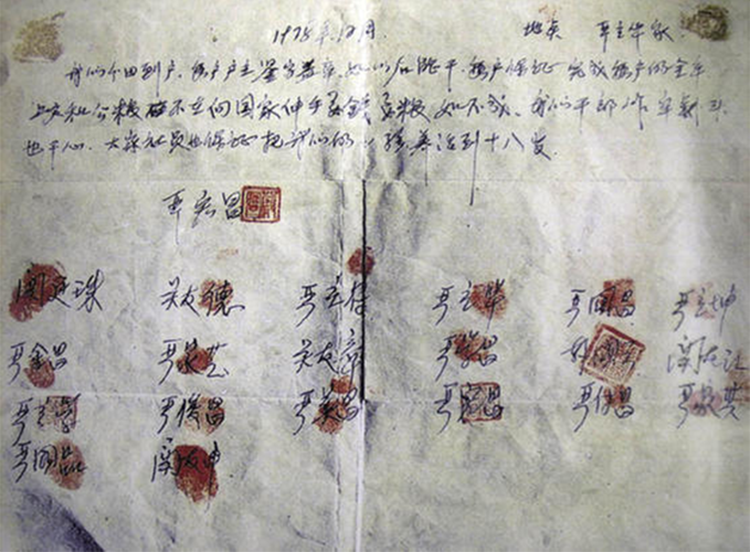 1978年12月. 地点 严立华家
我们分田到户.每户户主签字盖章.如以后能干.每户保证完成每户的全年
上交和公粮 不在向国家伸手要钱要粮 如不成.我们干部作牢刹头
也干心.大家社员也保证把我们的小孩养活到十八岁.
严宏昌
关廷珠 关友德 严立符 严立华 严国昌 严立坤
严金昌 严家芝 关友章 严学昌 韩国云 关友江
严立学 严俊昌 严美昌 严宏昌 严付昌 严家其
严国品 关友申